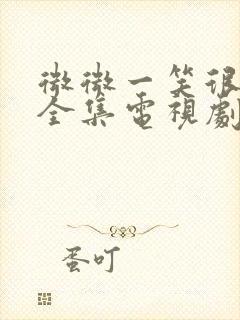 微微一笑很
全集電視劇
蛋叮